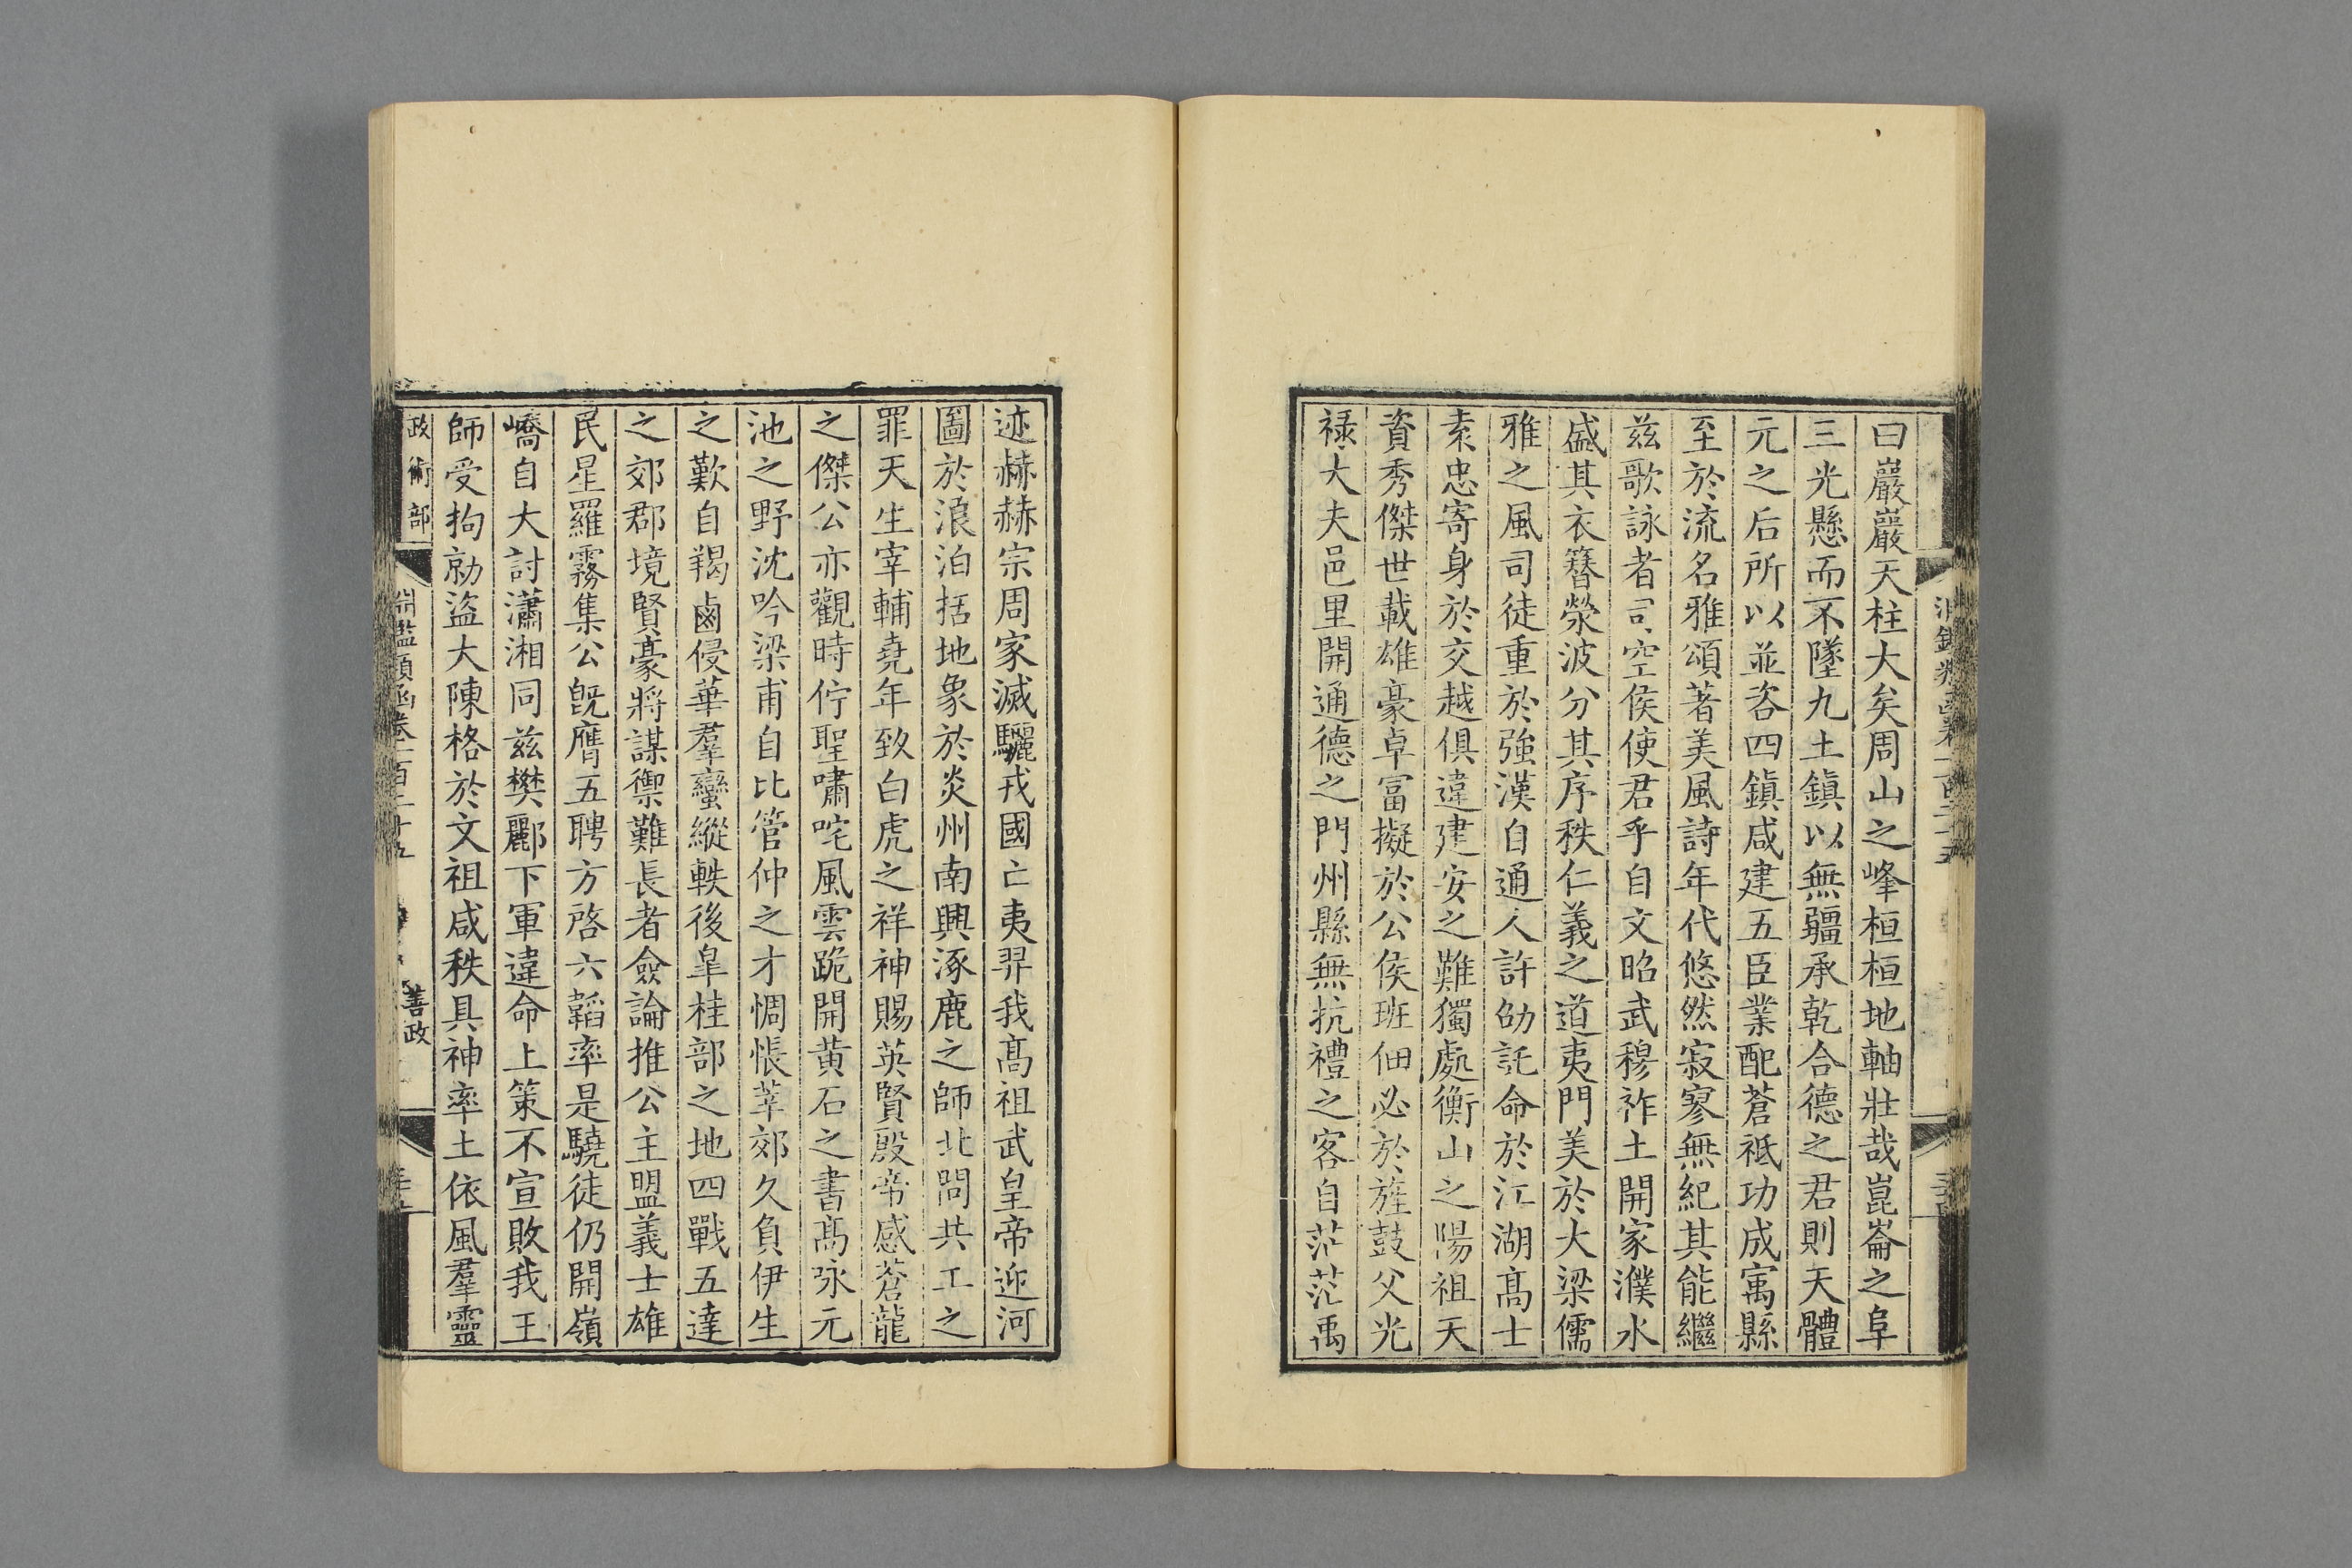 曰巖巖天柱大矣周山之峰桓桓地軸壯哉崑崙之阜
三光懸而不墜九土鎮以無疆承乾合德之君則天體
元之后所以並咨四鎮咸建五臣業配蒼祗功成寓縣
至於流名雅頌著美風詩年代悠然寂寥無紀其能繼
兹歌詠者司空侯使君乎自文昭武穆祚土開家濮水
盛其衣簪滎波分其序秩仁義之道夷門美於大梁儒
雅之風司徒重於強漢自通人許劭託命於江湖髙士
袁忠寄身於交越俱違建安之難獨處衡山之陽祖天
資秀傑世載雄豪卓冨擬於公侯班佃必於旌鼓父光
禄大夫邑里開通德之門州縣無抗禮之客自茫茫禹
迹赫赫宗周家滅驪戎國亡夷羿我髙祖武皇帝迎河
圖於浪泊括地象於炎州南興涿鹿之師北問共工之
罪天生宰輔堯年致白虎之祥神賜英賢殷帝感蒼龍
之傑公亦觀時佇聖嘯咤風雲跪開黄石之書髙咏元
池之野沈吟梁甫自比管仲之才惆悵莘郊久負伊生
之歎自羯鹵侵華羣蠻縱軼後皐桂部之地四戰五達
之郊郡境賢豪將謀禦難長者僉論推公主盟義士雄
民星羅霧集公旣膺五聘方啓六韜率是驍徒仍開嶺
嶠自大討瀟湘同兹樊酈下軍違命上策不宣敗我王
師受拘勍盜大陳格於文祖咸秩具神率土依風羣靈
政術部
淵鑑類函卷一百二十五
善政